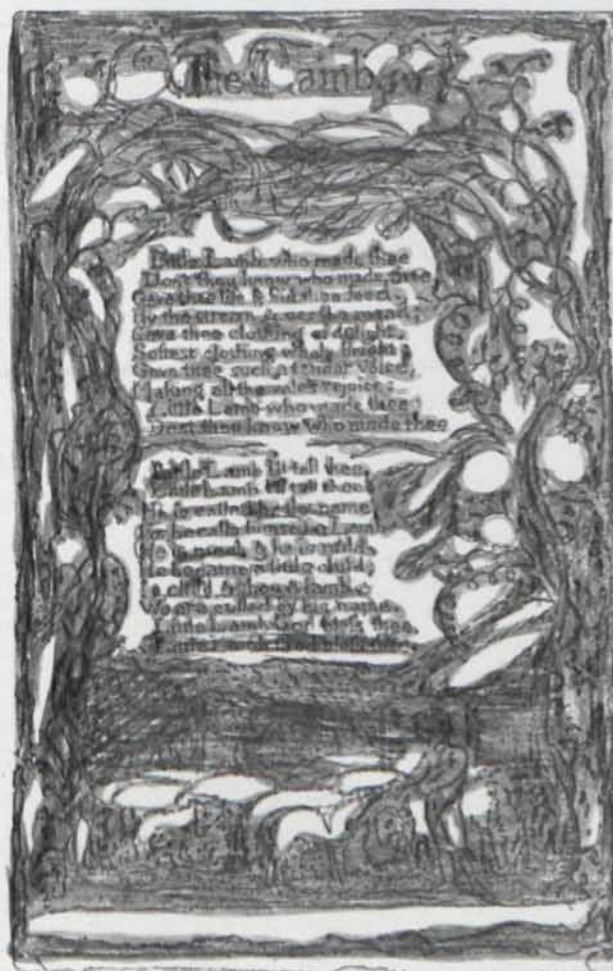 The Lamb
Little Lamb who made thee
Dost thou know who made thee
Gave thee life & bid thee feed
By the stream & o'er the mead;
Gave thee clothing of delight,
Softest clothing wooly bright;
Gave thee such a tender voice,
Making all the vales rejoice:
Little Lamb who made thee
Dost thou know who made thee
Little Lamb I'll tell thee,
Little Lamb I'll tell thee;
He is called by thy name,
For he calls himself a Lamb:
He is meek & he is mild,
He became a little child:
I a child & thou a lamb,
We are called by his name.
Little Lamb God bless thee,
Little Lamb God bless thee.